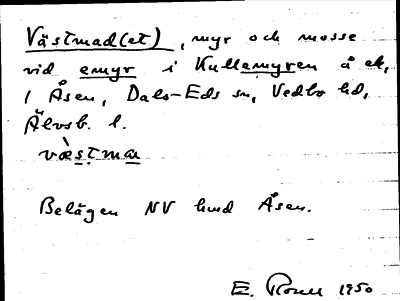 Västmad(et), myr och mosse
vid emyr i Kullamyren å ek,
1 Åsen, Dals-Eds sn, Vedbo hd,
Älvsb. l.
væ̀stma
Belägen NV hmd Åsen.
E. 1950